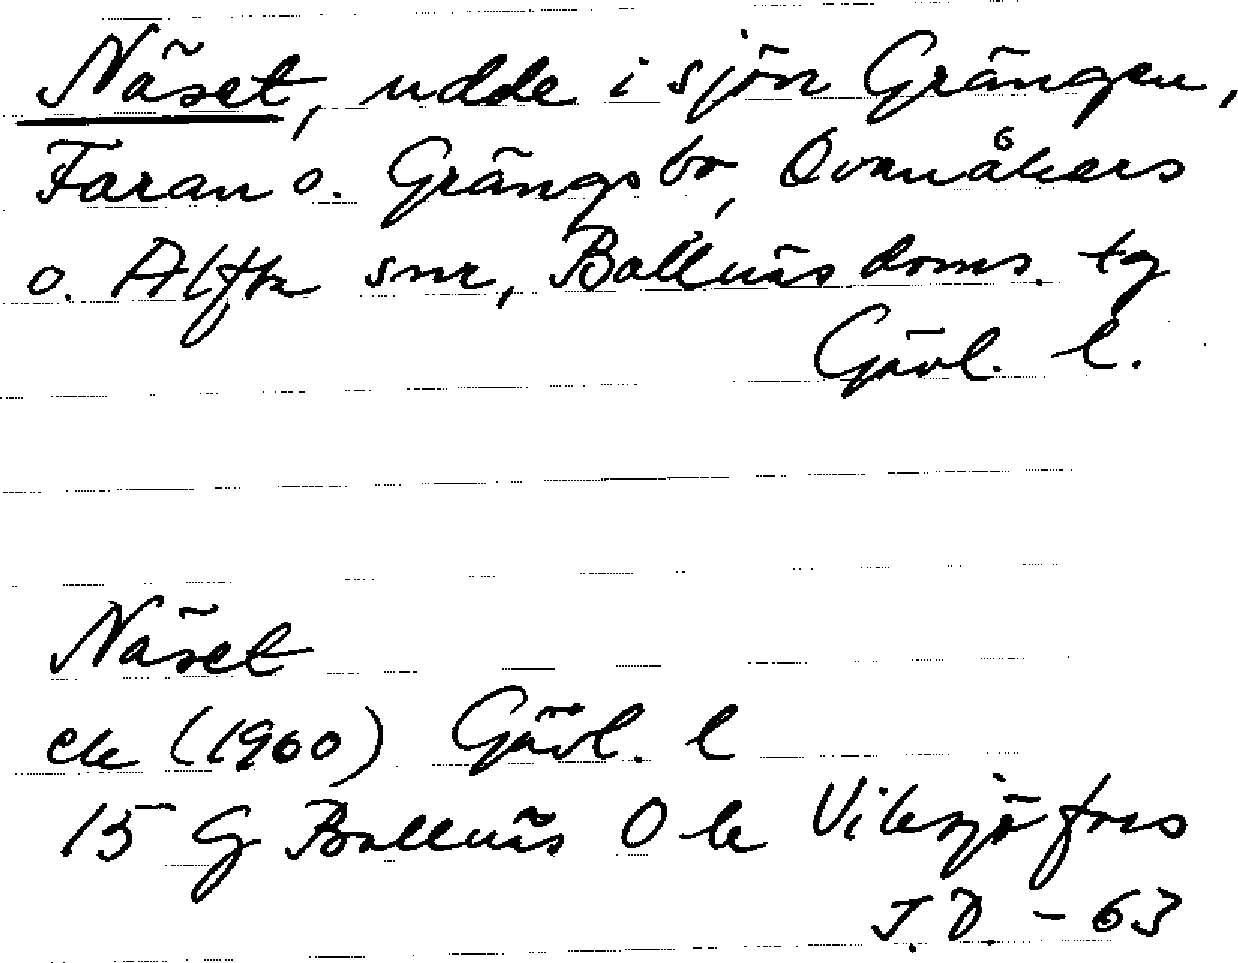 Näset, udde i sjön Grängen,
Faran o. Grängsbo, Ovanåkers
o. Alfta snr, Bollnäs doms. tg
Gävl. l.
Näset
ek (1960) Gävl. l
15 G Bollnäs O bl Viksjöfors
J.D. - 63